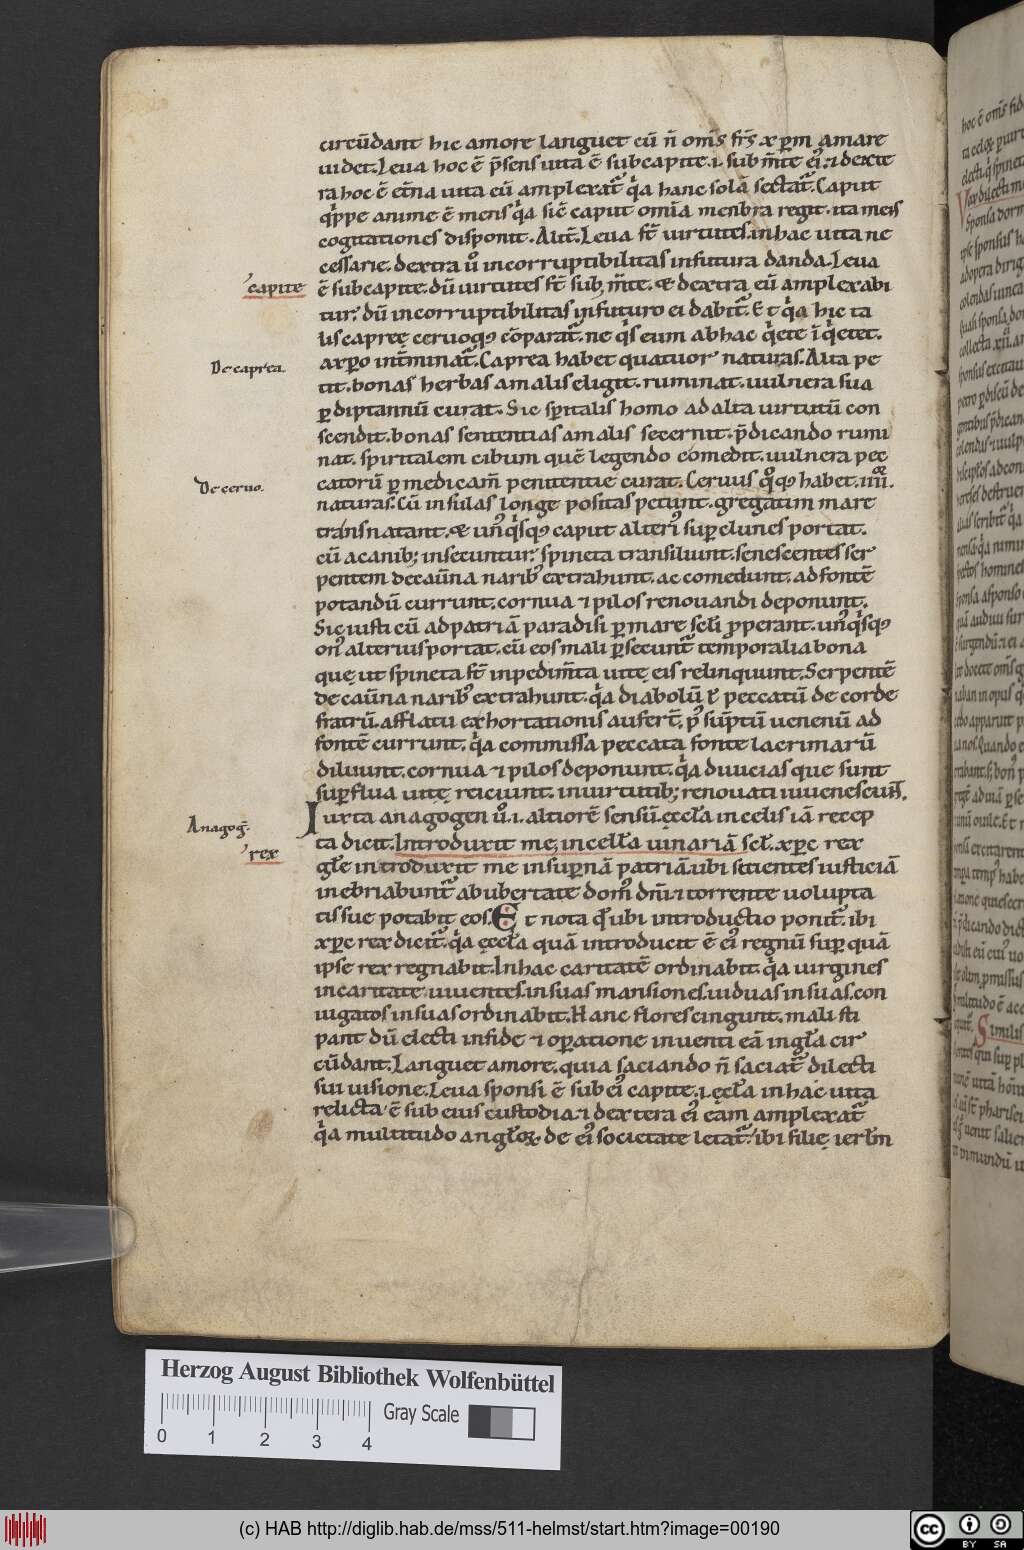 circūdant hic amore languet cū n̄ om̄s fr̄s x ꝑm amare
uidet. Leua hoc ē p̄sens uita ē sub capite .i. sub m̄te ei᷒. ⁊ dexte
ra hoc ē et̄na uita eū amplexat᷑ qͥa hanc solā sectat᷑. Caput
qͥppe anime ē mens qͥa sic̄ caput omīa menbra regit. ita mens
cogitationes disponit. Alit̄. Leua st̄ uirtutes. in hac uita ne
cessarie. dextra ů incorruptibilitas in futura danda. Leua
capite
ē sub capite. dū uirtutes st̄ sub m̄te. & dextra eū amplexabi
tur. dū incorruptibilitas in futuro ei dabit᷑. Et qͥa hic ta
lis capreę ceruoqꝫ cōparat᷑. ne qͥs eum ab hac qͥete īqͥetet.
De caprea.
a xp̄o int̄minat᷑. Caprea habet quatuor naturas. Alta pe
tit. bonas herbas a malis eligit. ruminat. uulnera sua
ꝑ diptannū curat. Sic sp̄italis homo ad alta uirtutū con
scendit. bonas sententias a malis secernit. p̄dicando rumi
nat. spiritalem cibum quē legendo comedit. uulnera pec
De ceruo.
catorū ꝑ medicam̄ penitentie curat. Ceruus qͦqꝫ habet .iiii.
naturas. Cū insulas longe positas petunt. gregatim mare
transnatant. & un᷒qͥsqꝫ caput alteri᷒ suꝑ clunes portat.
cū a canibꝫ insecuntur. spineta transiliunt. senescentes ser
pentem de cau̅na narib᷒ extrahunt. ac comedunt. ad fontē
potandū currunt. cornua ⁊ pilos renouandi deponunt.
Sic iusti cū ad patriā paradisi ꝑ mare scl̄i ꝓperant. un᷒qͥsqꝫ
on᷒ alterius portat. cū eos mali ꝑsecunt᷑ temporalia bona
quę ut spineta st̄ inpedim̄ta uitę eis relinquunt. Serpentē
de cau̅na narib᷒ extrahunt. qͥa diabolū ł peccatū de corde
fratrū. afflatu exhortationis aufert̄. p᷒ sūptū uenenū ad
fontē currunt. qͥa commissa peccata fonte lacrimarū
diluunt. cornua ⁊ pilos deponunt. qͥa diuicias que sunt
suꝑflua uitę reiciunt. in uirtutibꝫ renouati iuuenescunt.
Anagog̅.
Iuxta anagogen ů .i. altiorē sensū. ęccl̄a in celis iā recep
rex
ta dicit. Introduxit me, in cellā uinariā scl̄. xp̄c rex
gl̄e introduxit me in suꝑnā patriā. ubi sitientes iusticiā
inebriabunt᷑ ab ubertate dom᷒ dn̄i. ⁊ torrente uolupta
tis sue potabit eos. Et nota qd̄ ubi introductio ponit᷑. ibi
xp̄c rex dicit᷑. qͥa ęccl̄a quā introducit ē ei᷒ regnū suꝑ quā
ipse rex regnabit. In hac caritatē ordinabit. qͥa uirgines
in caritate uiuentes. in suas mansiones. uiduas in suas. con
iugatos in suas ordinabit. Hanc flores cingunt. mali sti
pant dū electi in fide ⁊ oꝑatione inuenti eā in gl̄a cir
cūdant. Languet amore. quia saciando n̄ saciat᷑ dilecti
sui uisione. Leua sponsi ē sub ei᷒ capite .i. ęccl̄a in hac uita
relicta ē sub eius custodia. ⁊ dextera ei᷒ eam amplexat᷑
qͥa multitudo angl̄oꝝ de ei᷒ societate letat᷑. ibi filię ierl̄m
Herzog August Bibliothek Wolfenbüttel
Gray Scale
0 1 2 3 4
(c) HAB http://diglib.hab.de/mss/511-helmst/start.htm?image=00190
cc BY SA